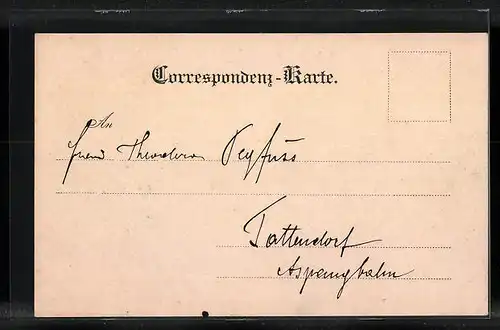 Correspondenz-Karte.
An
Theodora
Tattendorf
Aspangbahn